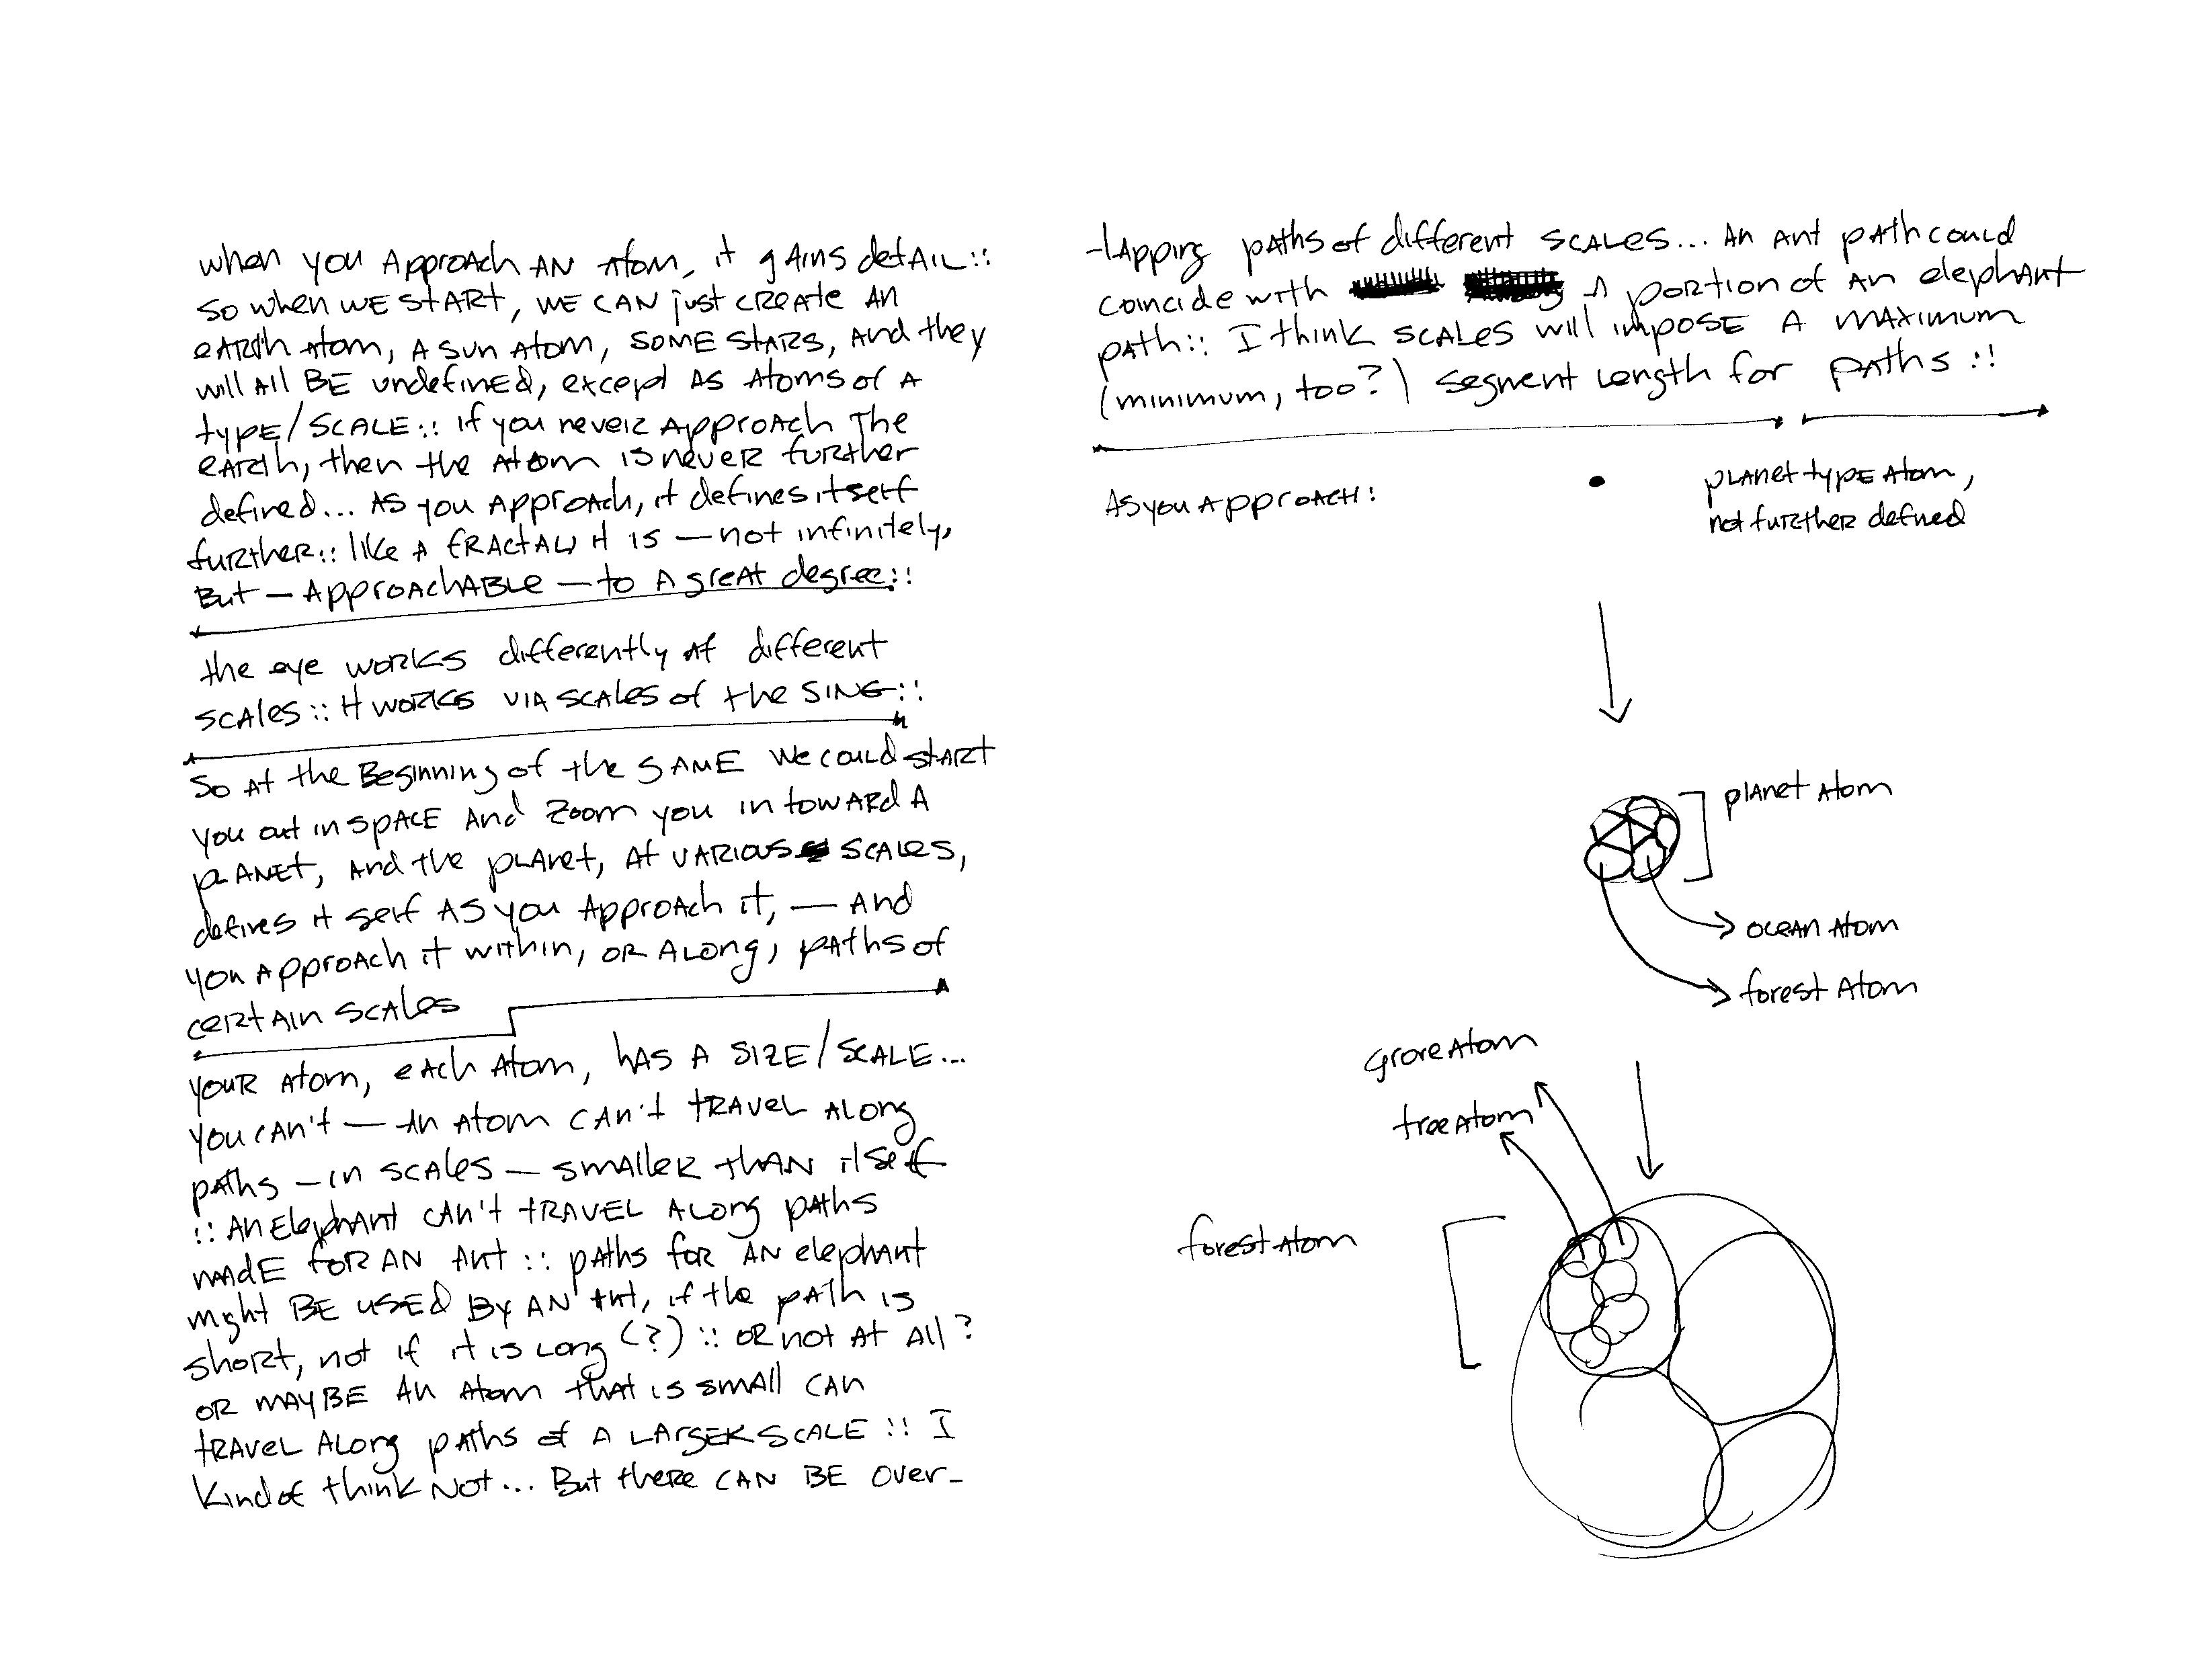 when you Approach AN Atom, it gAins detAIL::
so when WE START, WE CAN just CREATE AN
EARth Atom, A SUN Atom, SOME STARS, And they
will All BE undefined, except AS Atoms of A
tYPE/SCALE:: if you never Approach The
EARth, then the Atom is never further
defined... AS you Approach, it defines itself
further:: like A FRACTAL, it is — not infinitely,
But — ApproachABLE — to A great degree::
the eye works differently At different
SCAles:: it works VIA SCAles of the SING::
So At the Beginning of the SAME We could START
you out in SPACE And Zoom you in toward A
PLANET, And the plAnet, At VARIOUS SCALES,
defines itself AS you Approach it, — And
you Approach it within, OR ALong, pAths of
certAin SCAles
YOUR Atom, eAch Atom, hAS A SIZE/SCALE...
you CAn't — An Atom CAn't TRAVEL ALong
pAths — in SCAles — smaller thAN itself
:: An Elephant CAn't TRAVEL ALong pAths
mAdE for AN Ant :: pAths for AN elephant
might BE USEd By AN Ant, if the pAth is
short, not if it is Long (?) :: OR not At All?
OR MAYBE An Atom that is smAll CAn
TRAVEL ALong pAths of A LARGER SCALE :: I
Kind of think Not... But there CAN BE over-
-lApping pAths of different SCALES... An Ant pAth could
coincide with A portion of An elephant
pAth:: I think SCALES will impose A MAXIMUM
(minimum, too?) segment length for pAths ::
AS you Approach:
plAnet type Atom,
not further defined
plAnet Atom
oceAn Atom
forest Atom
grove Atom
tree Atom
forest Atom